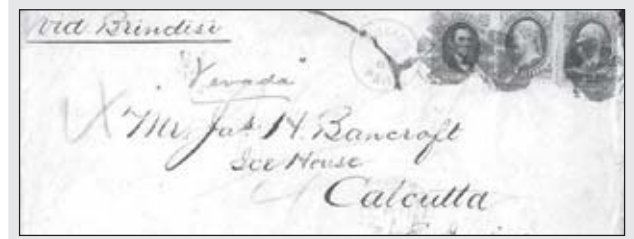 via Brindisi
"Nevada"
Mr. Jas. H. Bancroft
Ice House
Calcutta